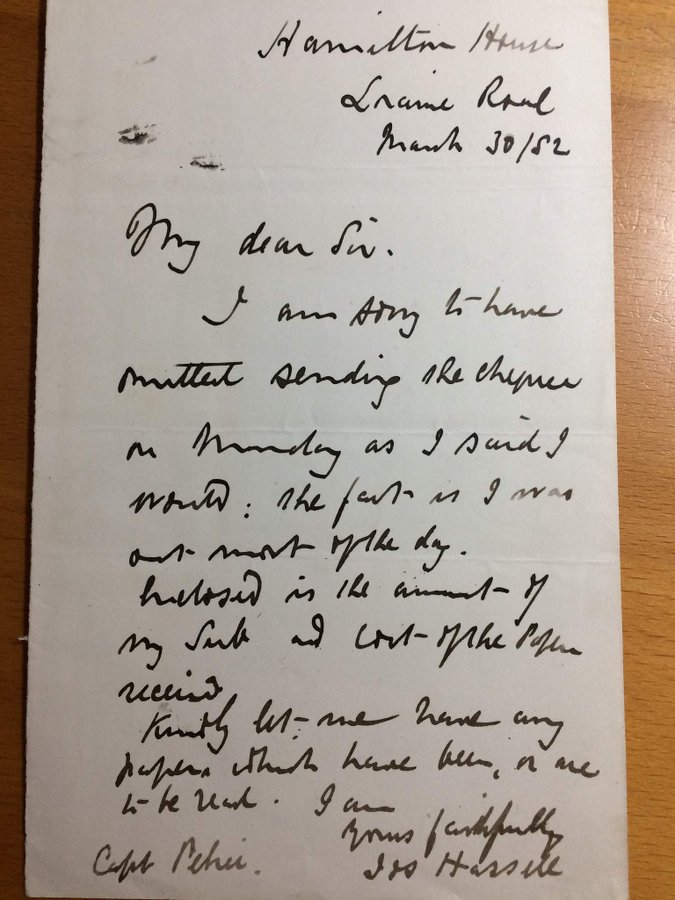 Hamilton House
Loraine Road
March 30/82
My dear Sir.
I am sorry to have
omitted sending the cheque
on Monday as I said I
would: the fact is I was
out most of the day.
Enclosed is the amount of
my Sub and cost of the Papers
received
Kindly let me have any
papers which have been, or are
to be read. I am
Yours faithfully
Jos Hassell
Capt Petrie.